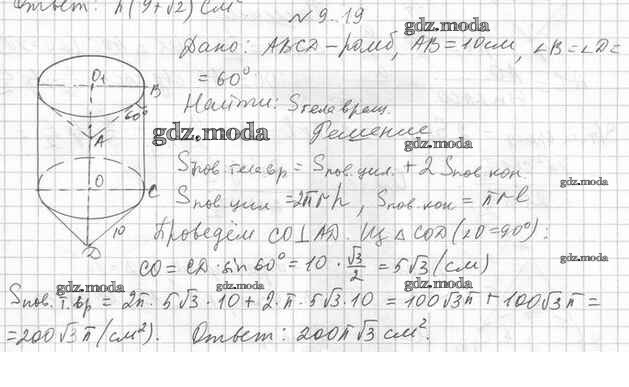 Ответ: π(9+√2) см²
№ 9.19
gdz.moda
Дано: ABCD – ромб, AB = 10см, ∠B = ∠D =
= 60°
Найти: Sтела вращ.
gdz.moda
Решение
gdz.moda
Sпов. тела вр = Sпов. цил. + 2 Sпов. кон.
gdz.moda
Sпов. цил = 2πrh, Sпов. кон = πrl
gdz.moda
Проведём CO⊥AD. Из △COD (∠O=90°):
CO = CD · sin 60° = 10 · √3/2 = 5√3 (см)
gdz.moda
gdz.moda
gdz.moda
gdz.moda
Sпов. т. вр = 2π · 5√3 · 10 + 2 · π · 5√3 · 10 = 100√3π + 100√3π =
= 200√3π (см²). Ответ: 200π√3 см².
gdz.moda
O₁
B
60°
A
O
C
10
D